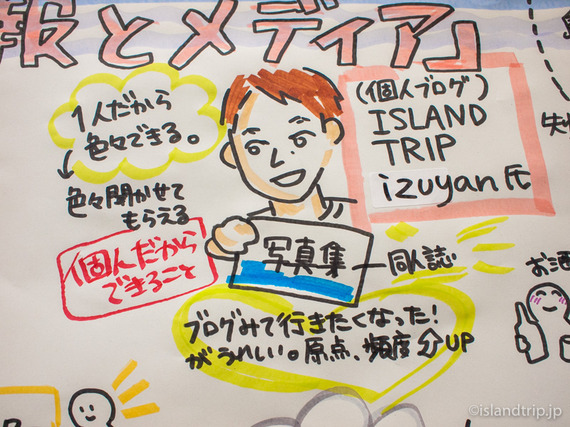 報とメディア」
1人だから
色々できる。
色々聞かせて
もらえる
個人だから
できること
(個人ブログ)
ISLAND
TRIP
izuyan氏
写真集
同人誌
ブログみて行きたくなった!
がうれしい。原点、頻度分UP
お酒
失
©islandtrip.jp